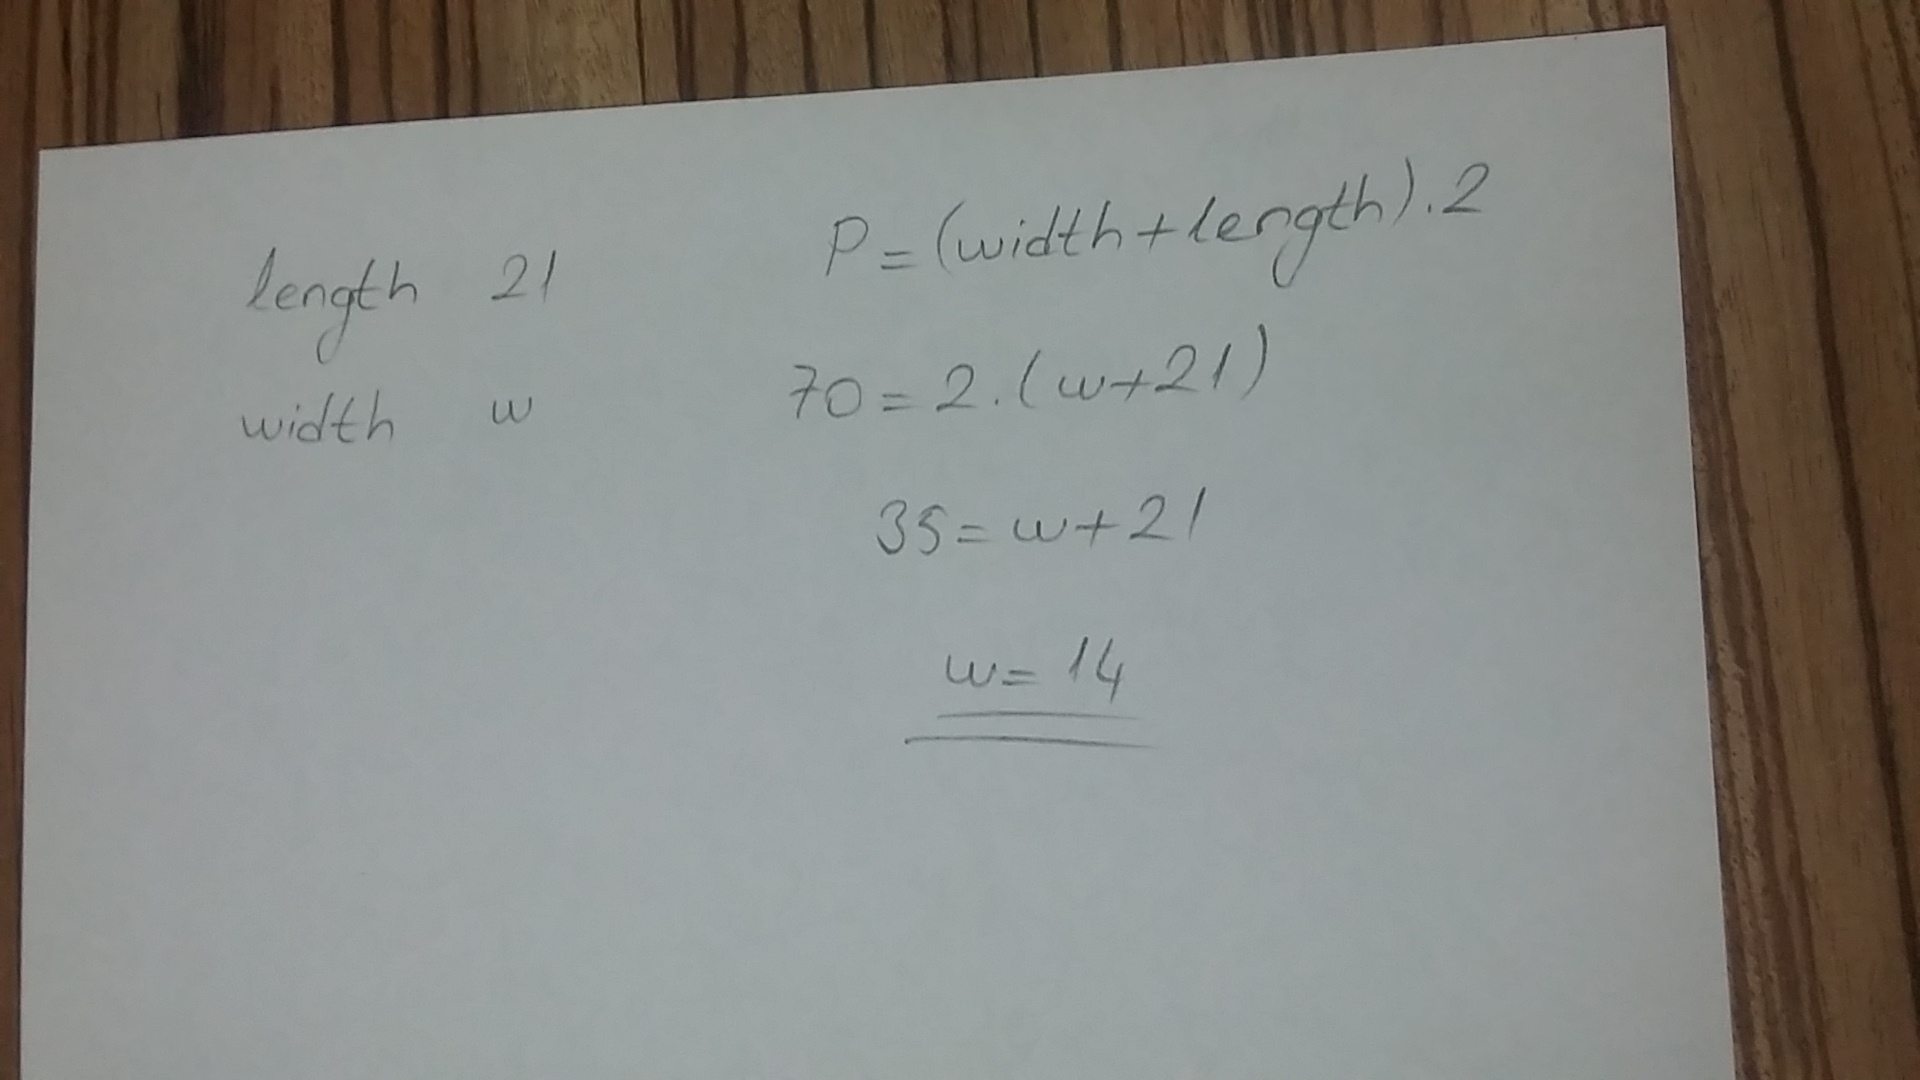 length 21
width w
P = (width + length) . 2
70 = 2 . (w + 21)
35 = w + 21
w = 14